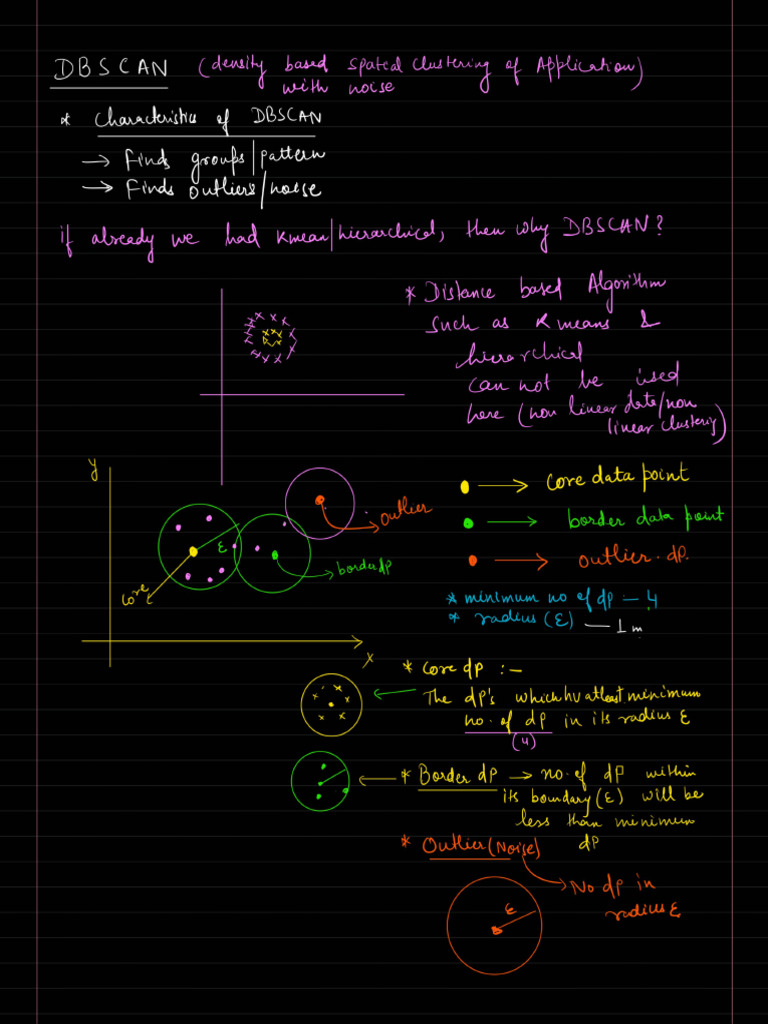 DBSCAN (density based spatial clustering of Application)
with noise
* Characteristics of DBSCAN
→ Finds groups/pattern
→ Finds outliers/noise
if already we had kmean/hierarchical, then why DBSCAN?
* Distance based Algorithm
such as K means &
hierarchical
can not be used
here (non linear data/non
linear clustering)
y
core data point
outlier
border data point
ε
border dp
outlier dp.
core
* minimum no of dp - 4
* radius (ε) — 1 m
x
* core dp :-
The dp's which hv atleast minimum
no. of dp in its radius ε
(4)
* Border dp → no. of dp within
its boundary (ε) will be
less than minimum
dp
* Outlier (Noise)
→ No dp in
radius ε
ε